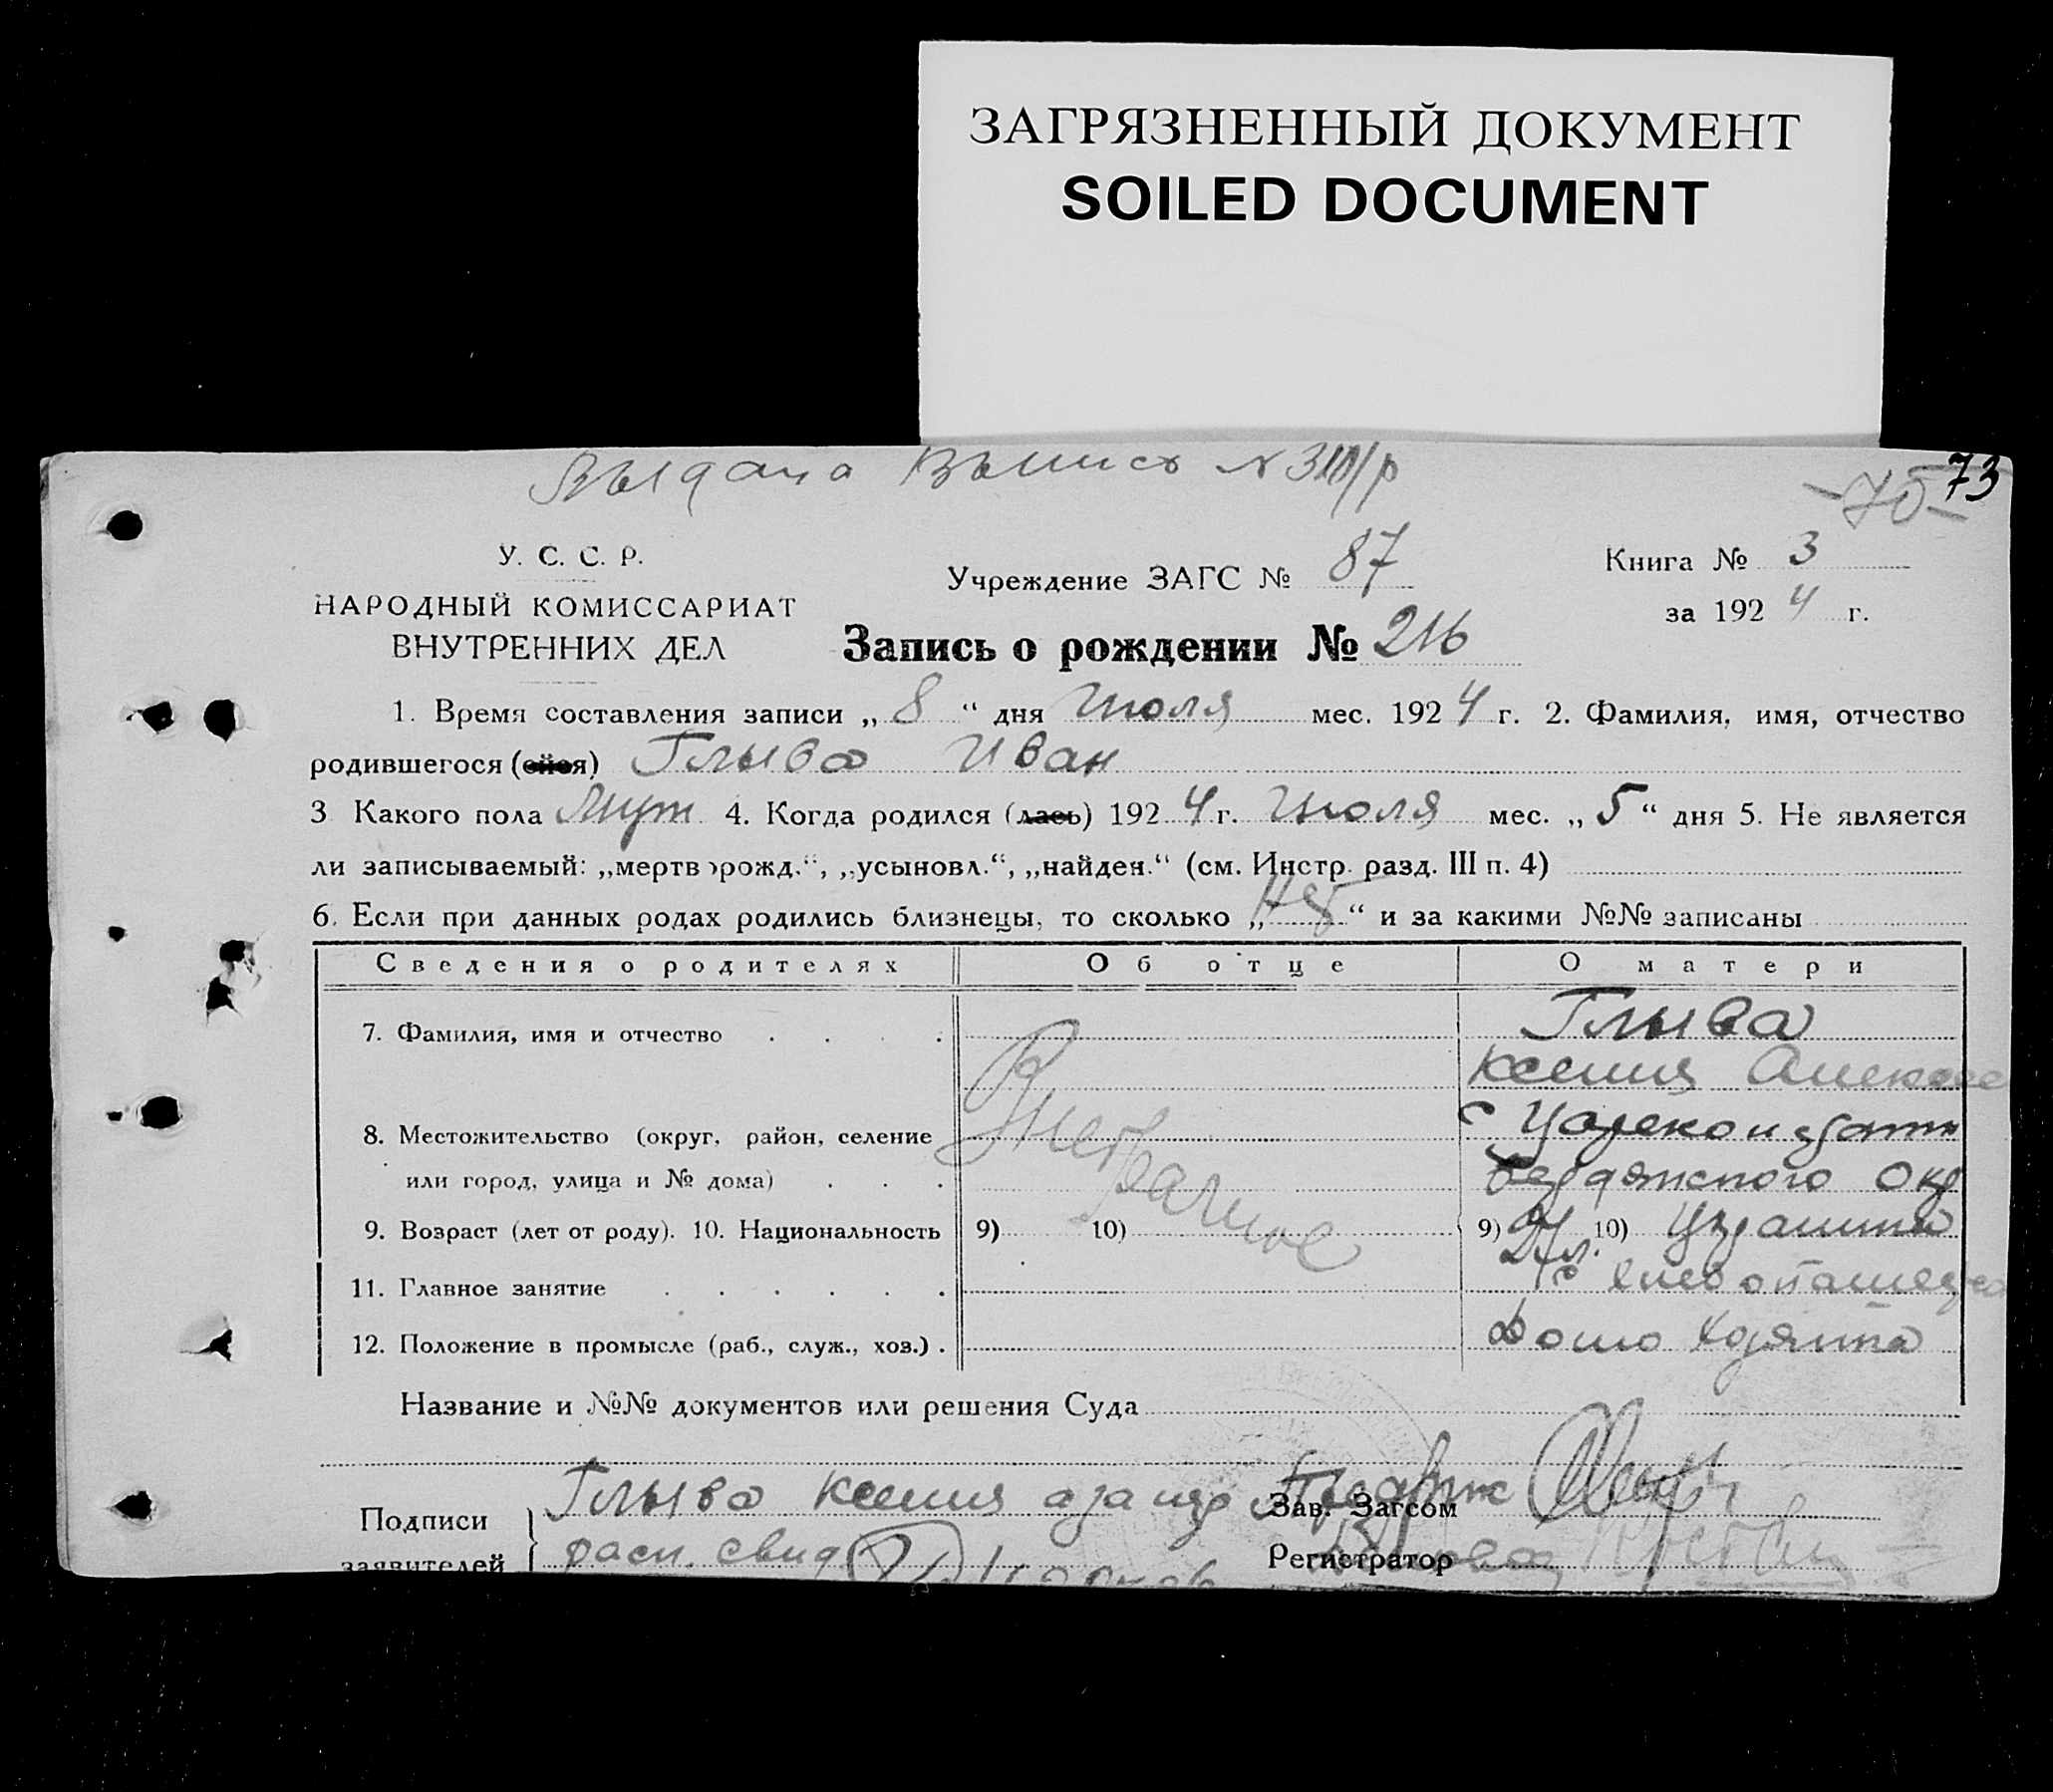 ЗАГРЯЗНЕННЫЙ ДОКУМЕНТ
SOILED DOCUMENT
Выдана Выпись № 310/р
73
-70-
У. С. С. Р.
НАРОДНЫЙ КОМИССАРИАТ
ВНУТРЕННИХ ДЕЛ
Учреждение ЗАГС № 87
Книга № 3
за 1924 г.
Запись о рождении № 216
1. Время составления записи „ 8 “ дня Июля мес. 1924 г. 2. Фамилия, имя, отчество
родившегося (ейся) Глыва Иван
3 Какого пола Муж 4. Когда родился (лась) 1924 г. Июля мес. „ 5 “ дня 5. Не является
ли записываемый: „мерткорожд.“, „усыновл.“, „найден.“ (см. Инстр. разд. III п. 4)
6. Если при данных родах родились близнецы, то сколько „ Нет “ и за какими №№ записаны
Сведения о родителях Об отце О матери
7. Фамилия, имя и отчество . . . . Глыва
Ксения
8. Местожительство (округ, район, селение с
или город, улица и № дома) . . . Бердянского Окр
Внебрачное
9. Возраст (лет от роду). 10. Национальность 9) 10) 9) 10) Украинка
11. Главное занятие . . . . . .
12. Положение в промысле (раб., служ., хоз.) . Дома Хозяйка
Название и №№ документов или решения Суда
Подписи
заявителей
Глыва Ксения
Зав. Загсом
Регистратор